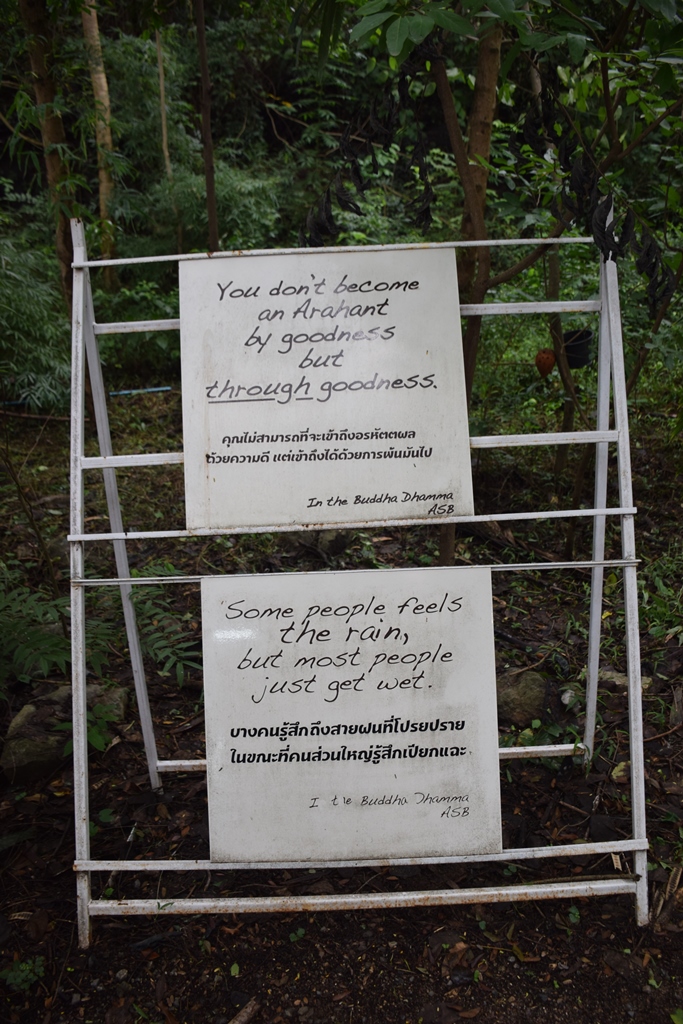 You don't become
an Arahant
by goodness
but
through goodness.
คุณไม่สามารถที่จะเข้าถึงอรหัตตผล
ด้วยความดี แต่เข้าถึงได้ด้วยการพ้นมันไป
In the Buddha Dhamma
ASB
Some people feels
the rain,
but most people
just get wet.
บางคนรู้สึกถึงสายฝนที่โปรยปราย
ในขณะที่คนส่วนใหญ่รู้สึกเปียกแฉะ
I t e Buddha Dhamma
ASB